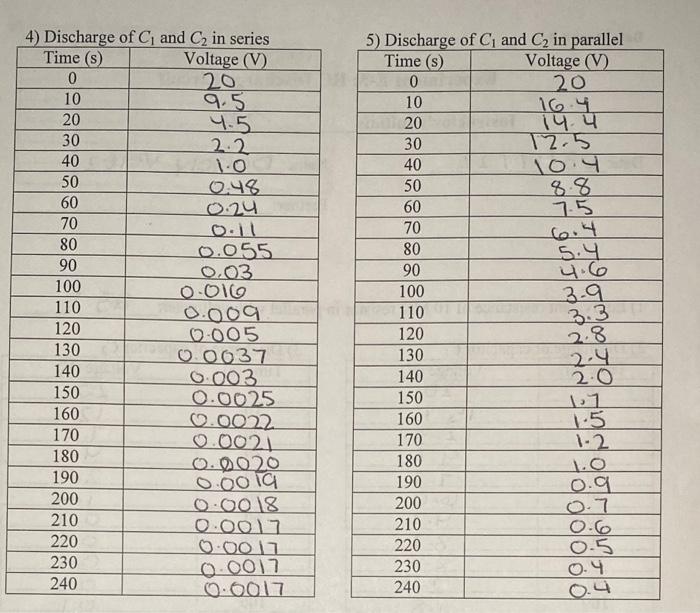 4) Discharge of C1 and C2 in series
Time (s) Voltage (V)
0 20
10 9.5
20 4.5
30 2.2
40 1.0
50 0.48
60 0.24
70 0.11
80 0.055
90 0.03
100 0.016
110 0.009
120 0.005
130 0.0037
140 0.003
150 0.0025
160 0.0022
170 0.0021
180 0.0020
190 0.0019
200 0.0018
210 0.0017
220 0.0017
230 0.0017
240 0.0017
5) Discharge of C1 and C2 in parallel
Time (s) Voltage (V)
0 20
10 16.4
20 14.4
30 12.5
40 10.4
50 8.8
60 7.5
70 6.4
80 5.4
90 4.6
100 3.9
110 3.3
120 2.8
130 2.4
140 2.0
150 1.7
160 1.5
170 1.2
180 1.0
190 0.9
200 0.7
210 0.6
220 0.5
230 0.4
240 0.4